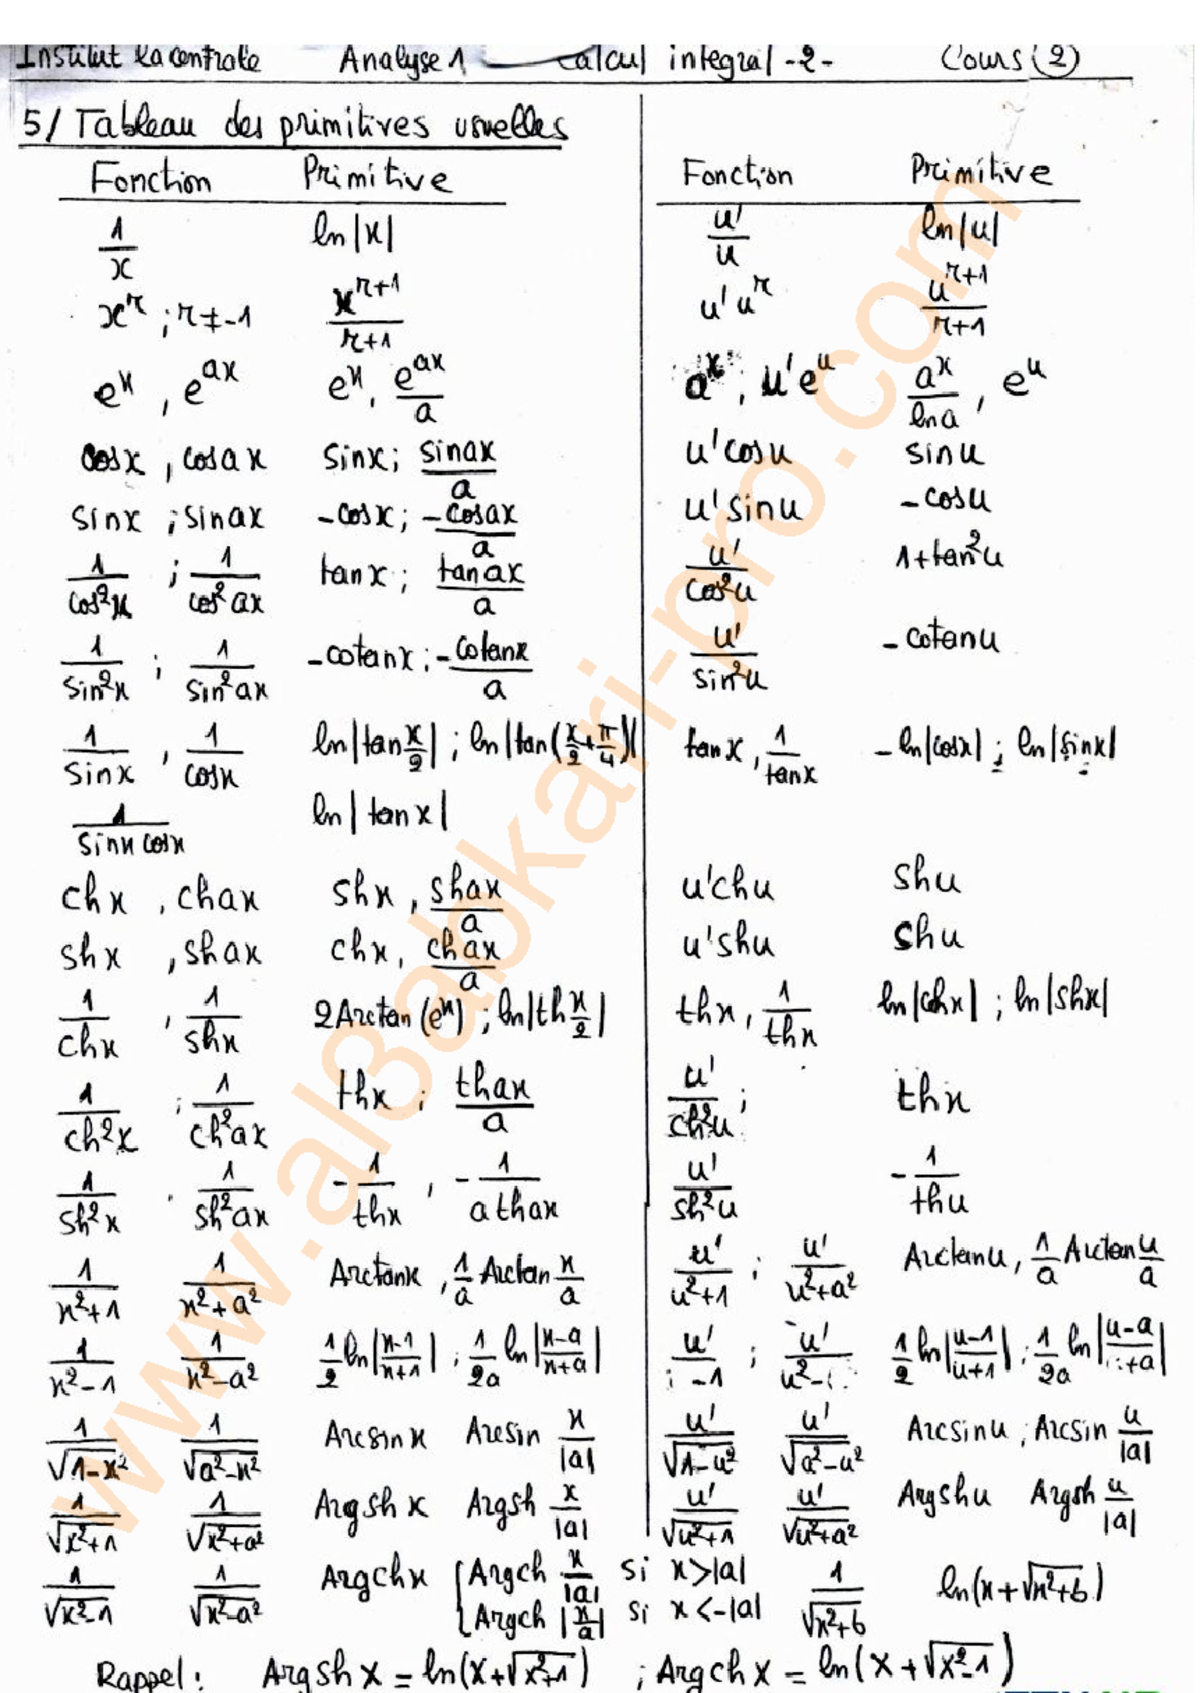 Institut la centrale Analyse 1 Calcul integral -2- Cours (2)
5/ Tableau des primitives usuelles
Fonction Primitive Fonction Primitive
1/x ln|x| u'/u ln|u|
x^r ; r≠-1 x^(r+1)/(r+1) u' u^r u^(r+1)/(r+1)
e^x , e^(ax) e^x , e^(ax)/a a^x ; u'e^u a^x/ln a , e^u
cosx , cosax sinx ; sinax/a u'cosu sinu
sinx ; sinax -cosx ; -cosax/a u'sinu -cosu
1/cos²x ; 1/cos²ax tanx ; tanax/a u'/cos²u 1+tan²u
1/sin²x ; 1/sin²ax -cotanx ; -cotanx/a u'/sin²u -cotanu
1/sinx , 1/cosx ln|tan x/2| ; ln|tan(x/2+π/4)| tanx , 1/tanx -ln|cosx| ; ln|sinx|
1/sinx cosx ln|tanx|
chx , chax shx , shax/a u'chu shu
shx , shax chx , chax/a u'shu shu
1/chx , 1/shx 2Arctan(e^x) ; ln|th x/2| thx , 1/thx ln|chx| ; ln|shx|
1/ch²x ; 1/ch²ax thx ; thax/a u'/ch²u ; thx
1/sh²x . 1/sh²ax -1/thx , -1/athax u'/sh²u -1/thu
1/(x²+1) 1/(x²+a²) Arctanx , 1/a Arctan x/a u'/(u²+1) ; u'/(u²+a²) Arctanu , 1/a Arctan u/a
1/(x²-1) 1/(x²-a²) 1/2 ln|(x-1)/(x+1)| ; 1/2a ln|(x-a)/(x+a)| u'/ -1 ; u'/u²- 1/2 ln|(u-1)/(u+1)| ; 1/2a ln|(u-a)/ +a|
1/√(1-x²) 1/√(a²-x²) Arcsinx Arcsin x/|a| u'/√(1-u²) u'/√(a²-u²) Arcsinu ; Arcsin u/|a|
1/√(x²+1) 1/√(x²+a²) Argshx Argsh x/|a| u'/√(u²+1) u'/√(u²+a²) Argshu Argsh u/|a|
1/√(x²-1) 1/√(x²-a²) Argchx { Argch x/|a| si x>|a|
Argch |x/a| si x<-|a| 1/√(x²+b) ln(x+√(x²+b))
Rappel : Argshx = ln(x+√(x²+1)) ; Argchx = ln(x+√(x²-1))
www.al3abkari-pro.com